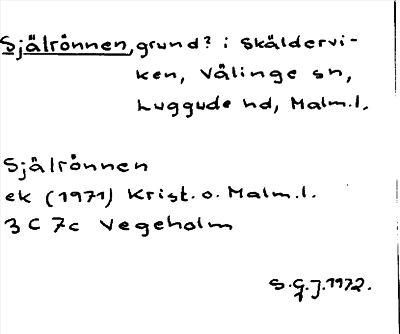 Själrönnen, grund? i Skäldervi-
ken, Välinge sn,
Luggude hd, Malm.l.
Själrönnen
ek (1971) Krist. o. Malm.l.
3 C 7c Vegeholm
S.G.J. 1972.